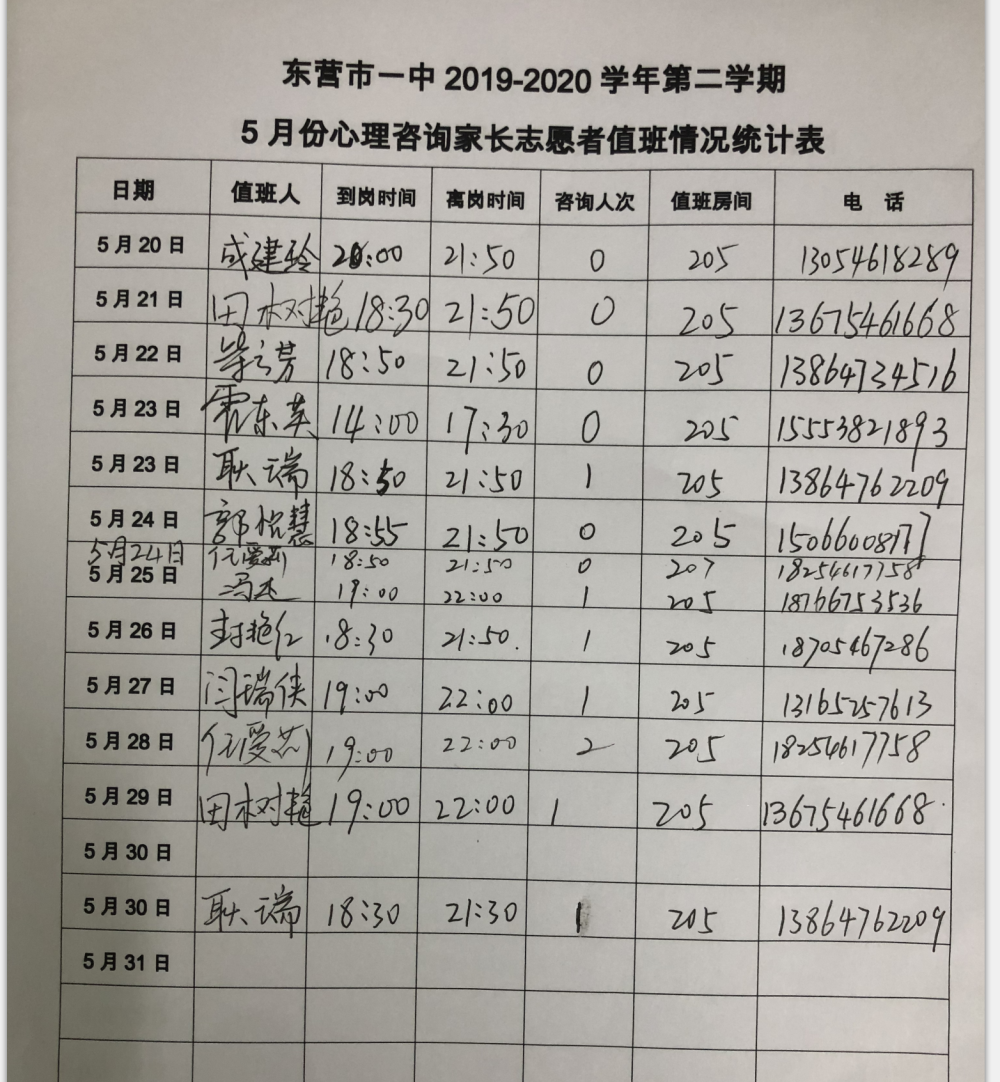 东营市一中 2019-2020 学年第二学期
5 月份心理咨询家长志愿者值班情况统计表
日期 值班人 到岗时间 离岗时间 咨询人次 值班房间 电 话
5 月 20 日 成建玲 20:00 21:50 0 205 13054618289
5 月 21 日 田树艳 18:30 21:50 0 205 13675461668
5 月 22 日 18:50 21:50 0 205 13864734516
5 月 23 日 霍东英 14:00 17:30 0 205 15553821893
5 月 23 日 耿瑞 18:50 21:50 1 205 13864762209
5 月 24 日 郭悦慧 18:55 21:50 0 205 15066008177
5月24日 任爱莉 18:50 21:50 0 207 18254617758
5 月 25 日 冯杰 19:00 22:00 1 205 18766753536
5 月 26 日 封艳红 18:30 21:50. 1 205 18705467286
5 月 27 日 闫瑞侠 19:00 22:00 1 205 13165257613
5 月 28 日 任爱莉 19:00 22:00 2 205 18254617758
5 月 29 日 田树艳 19:00 22:00 1 205 13675461668
5 月 30 日
5 月 30 日 耿瑞 18:30 21:30 1 205 13864762209
5 月 31 日